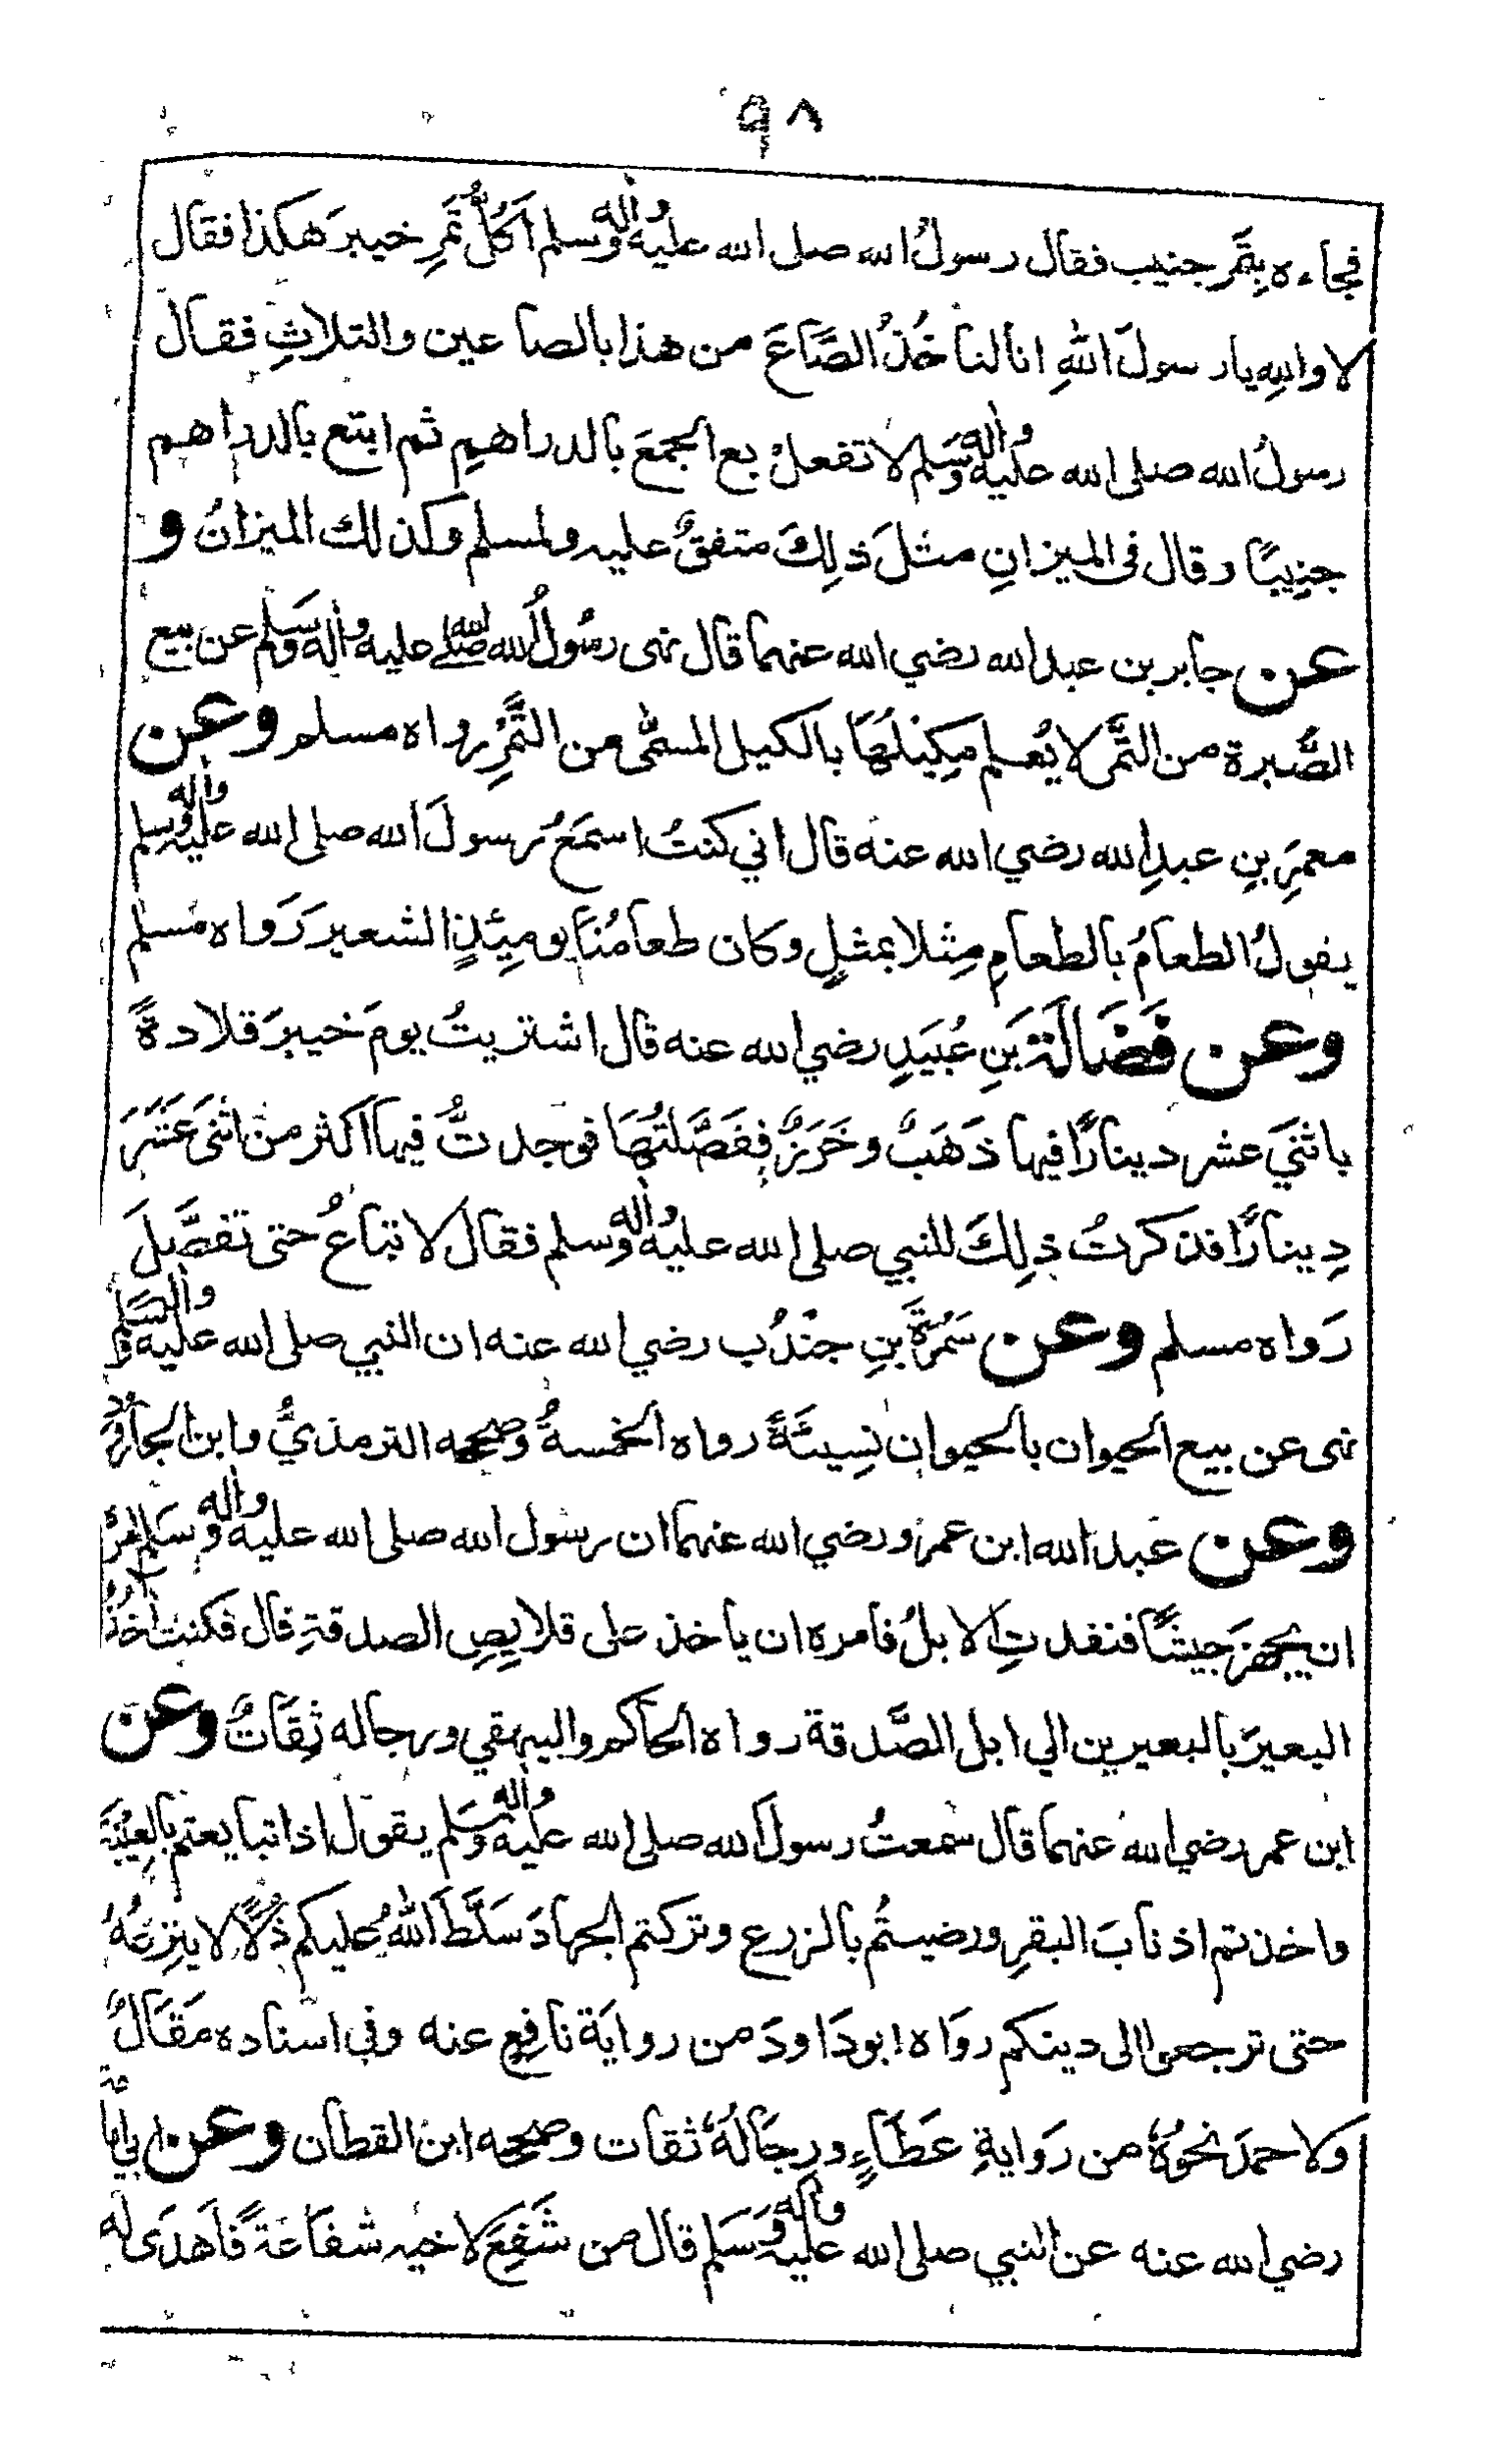 ٩٨
فجاءه بِتَمرٍ جنيب فقال رسولُ الله صلى الله عليه واله وسلم اَكُلُّ تَمرِ خيبرَ هكذا فقال
لا واللهِ يا رسولَ اللهِ انا لنا خُذُ الصَّاعَ من هذا بالصاعين والثلاثِ فقال
رسولُ الله صلى الله عليه واله وَسَلم لا تفعلْ بع الجمعَ بالدراهمِ ثم ابتع بالدراهم
جنِيبًا وقال فى الميزانِ مثلَ ذلِكَ متفقٌ عليه ولمسلم وكذلك الميزانُ و
عن جابر بن عبد الله رضي الله عنهما قال نهى رسُولُ الله صلى الله عليه واله وسَلم عن بيع
الصُّبرة من التَّمر لا يُعلم مكِيْلُهَا بالكيل المسمّى من التَّمْرِ رواه مسلم وعن
معمرِ بنِ عبدِ الله رضي الله عنه قال اني كنتُ اسمَعُ رسولَ الله صلى الله عليه واله وسلم
يقولُ الطعامُ بالطعامِ مِثلا بمثلٍ وكان طعامُنَا يومئِذٍ الشعير رَواه مُسلم
وعن فَضَالَةَ بَنِ عُبَيَدٍ رضي الله عنه قال اشتريتُ يومَ خيبرَ قلادةً
باثنَي عشر دينارًا فيها ذَهَبٌ وخَرَزٌ ففَصَّلتُهَا فوجدتُّ فيها اكثر من اثنَى عَشَرَ
دِينارًا فذكرتُ ذلِكَ للنبي صلى الله عليه واله وسلم فقالَ لا تباعُ حتى تفصَّلَ
رَواه مسلم وعن سَمُرَةَ بنِ جنْدُب رضي الله عنه ان النبي صلى الله عليه واله وسَلم
نهى عن بيع الحيوان بالحيوان نسِيئَةً رواه الخمسةُ وصححه الترمذيُّ وابن الجارُود
وعن عبد الله ابن عمرو رضي الله عنهما ان رسُول الله صلى الله عليه واله وسَلم امرهُ
ان يجهزَ جيشًا فنفدتِ الابلُ فامره ان ياخذ على قلايِصِ الصدقةِ قال فكنت اٰخُذُ
البعيرَ بالبعيرين الي ابل الصَّدقة رواه الحاكم والبيهقي ورجاله ثِقَاتٌ وعن
ابن عمر رضي اللهُ عنهما قال سَمعتُ رسولَ الله صلى الله عليه واله وسَلم يقول اذا تبايعتم بالعِيْنَةِ
واخذتم اذنابَ البقرِ ورضيتُم بالزرع وتركتم الجهادَ سَلَّطَ اللهُ عليكم ذُلًّا لا ينزِعُهُ
حتى ترجعوا الى دينكم روَاه ابو دَاودَ من روايَة نافِعٍ عنه وفي اسنَاده مَقَالٌ
ولاحمدَ نحوُهُ من رَوايةِ عَطَاءٍ ورِجَالُهُ ثقات وصححه ابنُ القطان وعن ابي امامة
رضي الله عنه عن النبي صلى الله عليه واله وسَلم قال من شَفِعَ لاخيه شفَاعَةً فاَهدَى له